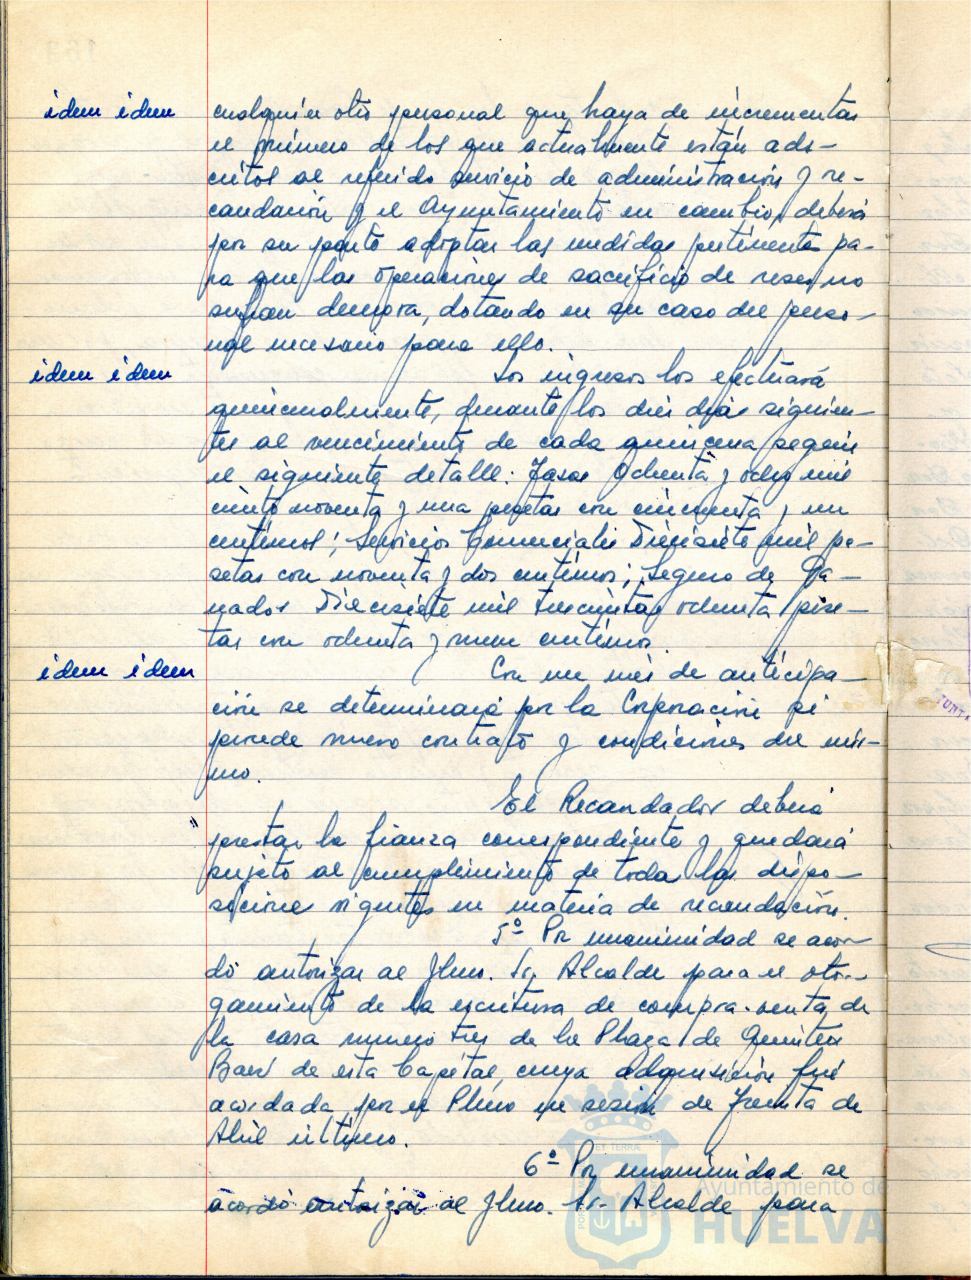 idem idem
cualquier otro personal que haya de incrementar
el número de los que actualmente están ads-
critos al referido servicio de administración y re-
caudación y el Ayuntamiento en cambio, deberá
por su parte adoptar las medidas pertinentes pa-
ra que las operaciones de sacrificio de reses no
sufran demora, dotando en su caso del perso-
nal necesario para ello.
idem idem
Los ingresos los efectuará
quincenalmente, durante los diez días siguien-
tes al vencimiento de cada quincena según
el siguiente detalle: Tasas Ochenta y ocho mil
ciento noventa y una pesetas con cincuenta y un
centimos; Servicios Comerciales Diecisiete mil pe-
setas con noventa y dos centimos; Seguro de Ga-
nados Diecisiete mil trescientas ochenta pese-
tas con ochenta y nueve centimos.
idem idem
Con un mes de anticipa-
ción se determinará por la Corporación si
procede nuevo contrato y condiciones del mis-
mo.
El Recaudador deberá
prestar la fianza correspondiente y quedará
sujeto al cumplimiento de todas las dispo-
siciones vigentes en materia de recaudación.
5º Por unanimidad se acor-
dó autorizar al Ilmo. Sr. Alcalde para el otor-
gamiento de la escritura de compra-venta de
la casa numero tres de la Plaza de Quintero
Baez de esta Capital cuya adquisición fué
acordada por el Pleno en sesión de Treinta de
Abril último.
6º Por unanimidad se
acordó autorizar al Ilmo. Sr. Alcalde para
Ayuntamiento de
HUELVA